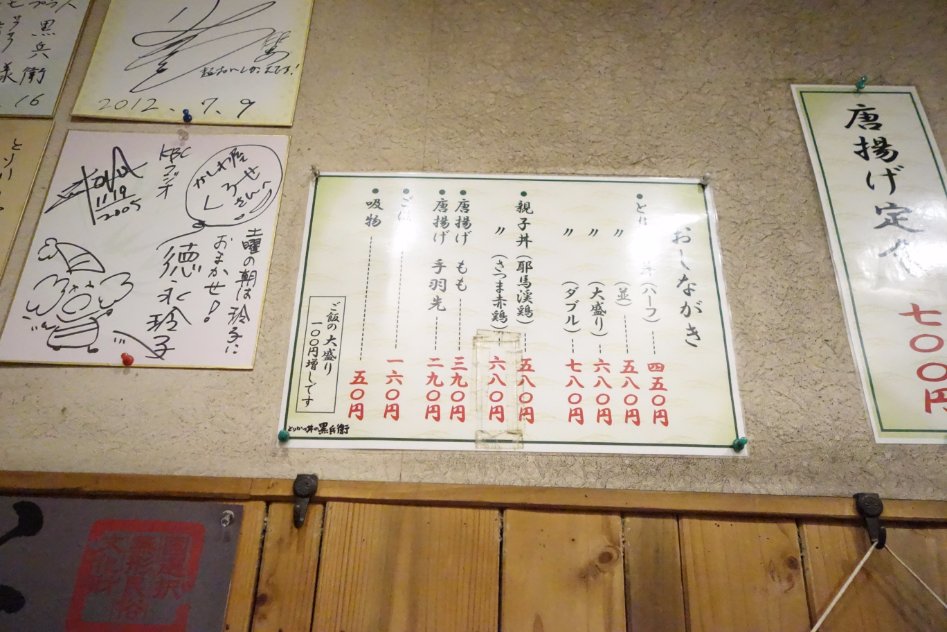 おしながき
●とり 丼(ハーフ) 四五〇円
〃(並) 五八〇円
〃(大盛り) 六八〇円
〃(ダブル) 七八〇円
●親子丼(耶馬渓鶏) 五八〇円
〃(さつま赤鶏) 六八〇円
●唐揚げ もも 三九〇円
●唐揚げ 手羽先 二九〇円
●ごは 一六〇円
●吸物 五〇円
ご飯の大盛り
一〇〇円増しです
とりかつ丼の黒兵衛
唐揚げ定
七〇〇円
2012.7.9
黒兵衛
16
KBC
ラジオ
11/19
2005
土曜の朝は玲子に
おまかせ!
徳永玲子